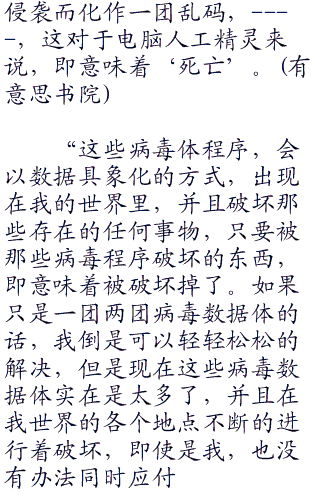 侵袭而化作一团乱码，---
-，这对于电脑人工精灵来
说，即意味着‘死亡’。(有
意思书院)
“这些病毒体程序，会
以数据具象化的方式，出现
在我的世界里，并且破坏那
些存在的任何事物，只要被
那些病毒程序破坏的东西，
即意味着被破坏掉了。如果
只是一团两团病毒数据体的
话，我倒是可以轻轻松松的
解决，但是现在这些病毒数
据体实在是太多了，并且在
我世界的各个地点不断的进
行着破坏，即使是我，也没
有办法同时应付